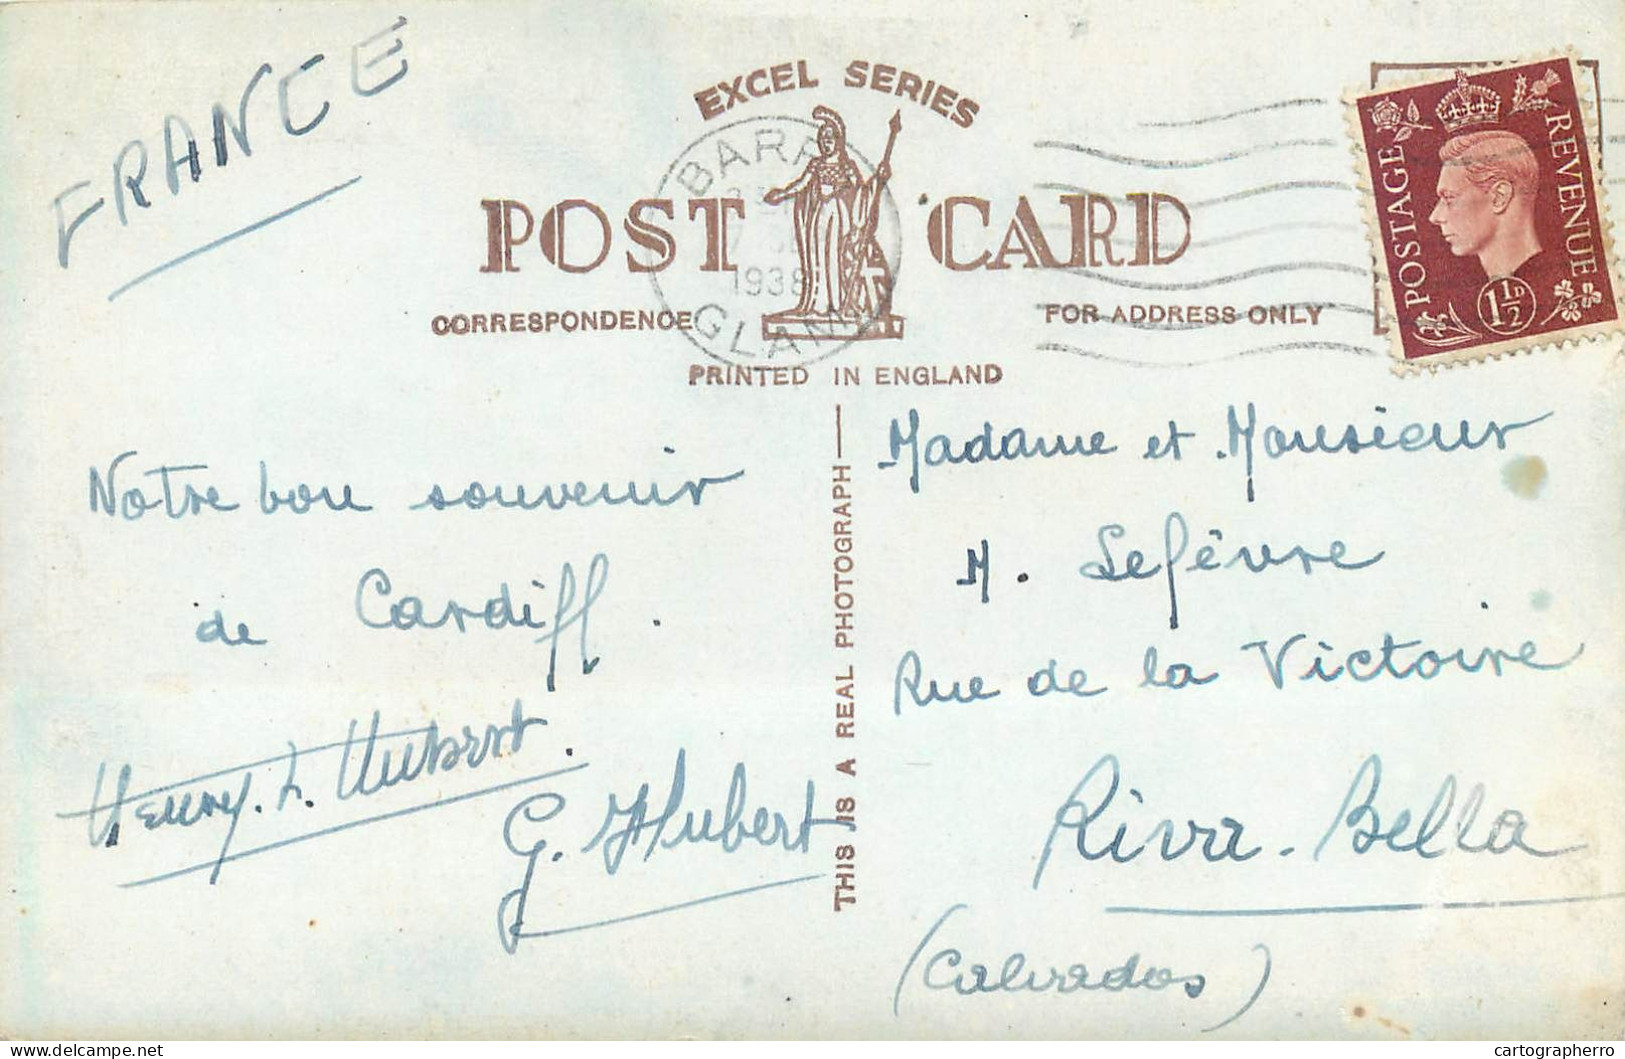 FRANCE
EXCEL SERIES
POST CARD
CORRESPONDENCE
FOR ADDRESS ONLY
PRINTED IN ENGLAND
BARRY
1938
GLAM
POSTAGE
REVENUE
1½D
Notre bon souvenir
de Cardiff.
Henry. L. Hubert.
G. Hubert
THIS IS A REAL PHOTOGRAPH
Madame et Monsieur
M. Lefèvre
Rue de la Victoire
Riva-Bella
(Calvados)
delcampe.net
cartographerro